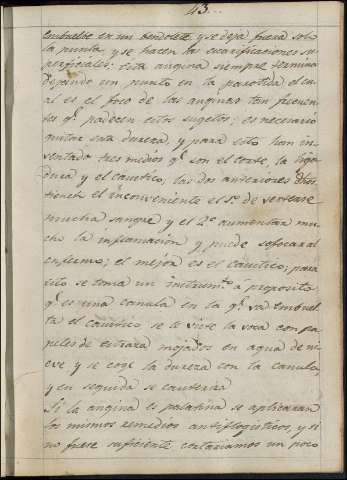 43..
embuelve en un bendolete y se deja fuera solo
la punta y se hacen las escarificaciones su
perficiales: esta angina siempre termina
dejando un punto en la parotida el cu
al es el foco de las anginas tan frecuen
tes q.e padecen estos sugetos; es necesario
quitar esta dureza, y para esto han in
ventado tres medios q.e son el corte, la liga
dura y el caustico; las dos anteriores
tienen el inconveniente el 1.o de verterse
mucha sangre y el 2.o aumentar mu
cho la inflamacion y puede sofocar al
enfermo; el mejor es el caustico; para
esto se toma un instrum.to á proposito
q.e es una canula en la q.e va embuel
ta el caustico se le viste la voca con pa
peles de estraza mojados en agua de ni
eve y se coge la dureza con la canula,
y en seguida se cauteriza
Si la angina es palatina se aplicaran
los mismos remedios antiflogisticos, y si
no fuese suficiente cortariamos un poco